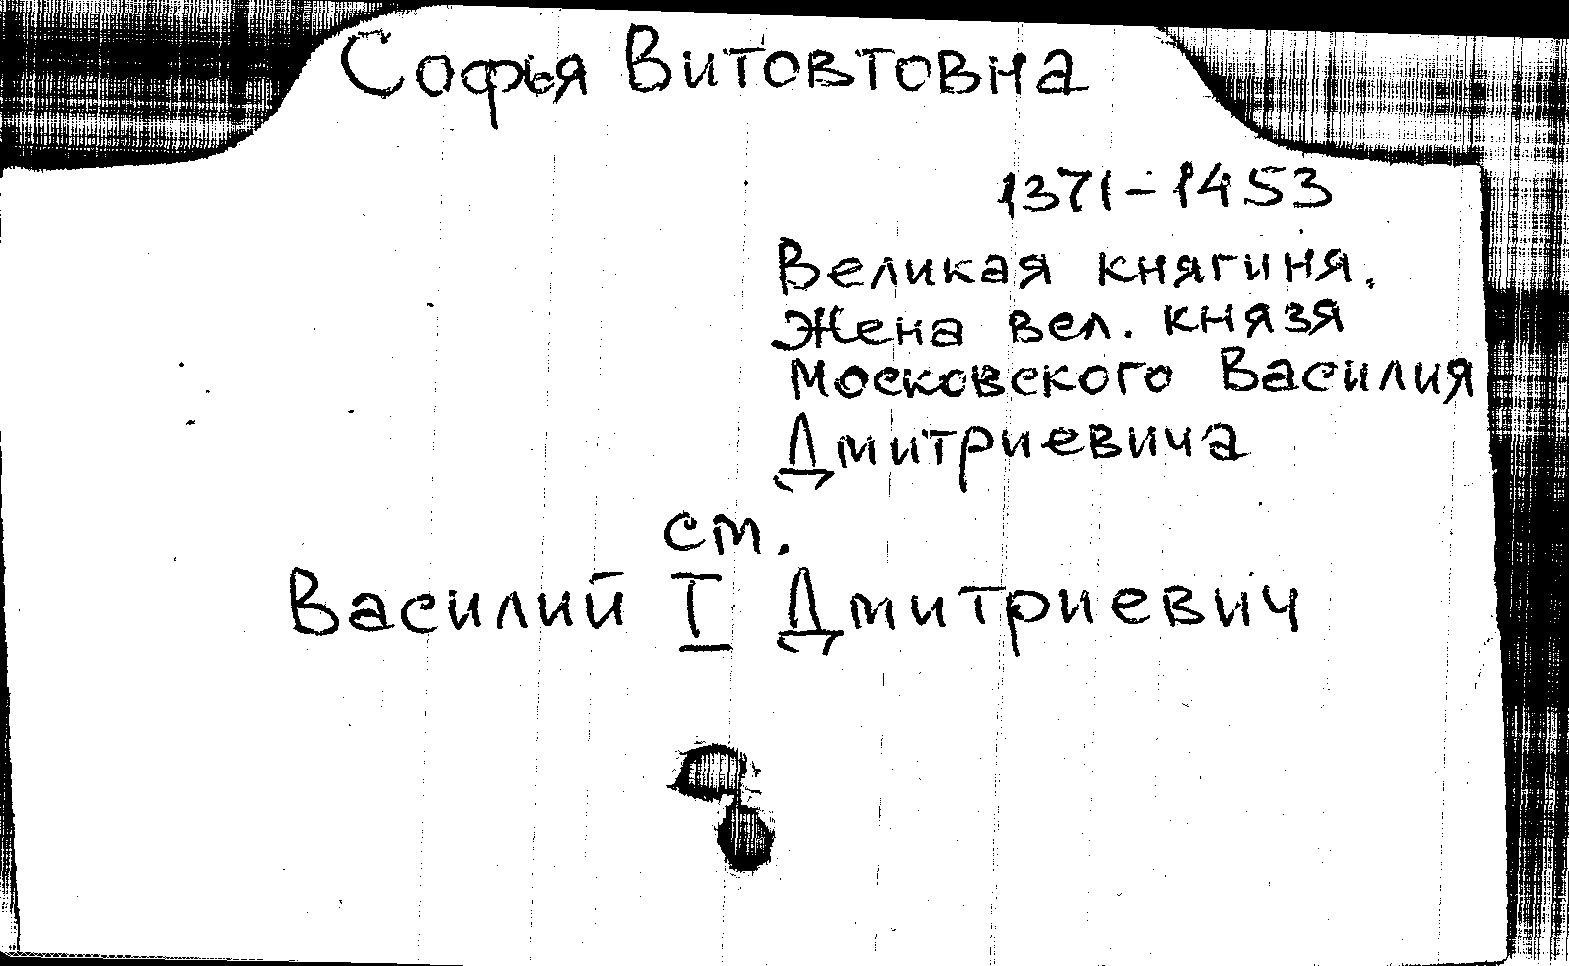 Софья Витовтовна
1371-1453
Великая княгиня.
Жена вел. князя
Московского Василия
Дмитриевича
см.
Василий I Дмитриевич